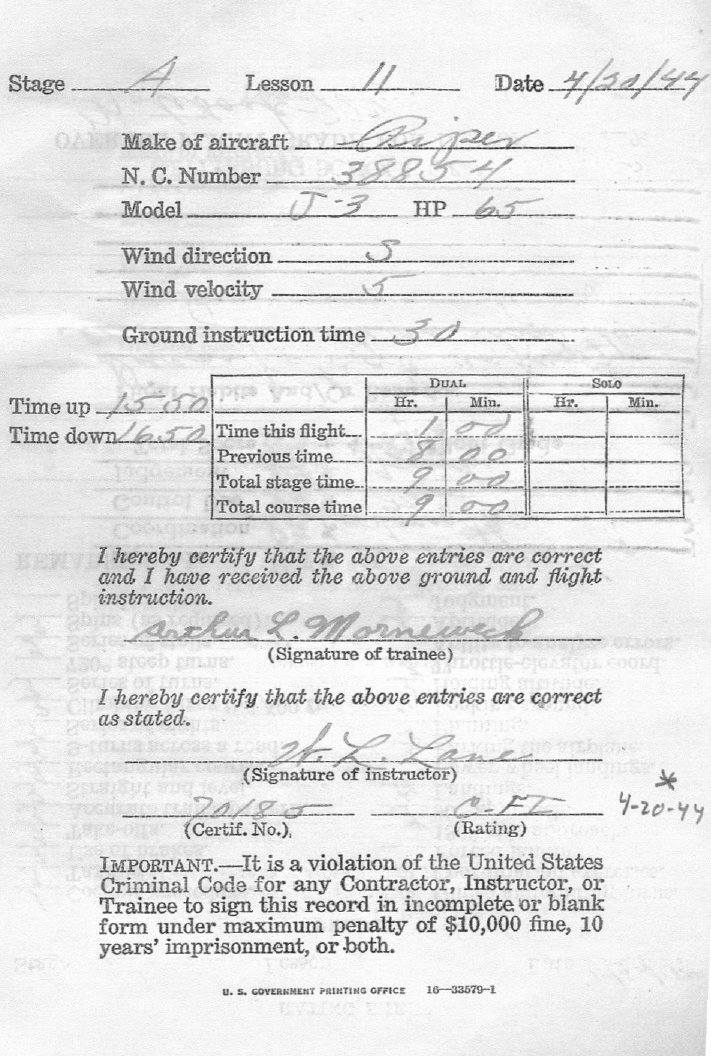 Stage A Lesson 11 Date 4/20/44
Make of aircraft Piper
N. C. Number 38854
Model J-3 HP 65
Wind direction S
Wind velocity 5
Ground instruction time 30
Time up 1550
Time down 1650
DUAL SOLO
Hr. Min. Hr. Min.
Time this flight 1 00
Previous time 8 00
Total stage time 9 00
Total course time 9 00
I hereby certify that the above entries are correct
and I have received the above ground and flight
instruction.
Arthur L. Morneweck
(Signature of trainee)
I hereby certify that the above entries are correct
as stated.
W. L. Lane
(Signature of instructor)
*
70185 C-FI 4-20-44
(Certif. No.) (Rating)
IMPORTANT.—It is a violation of the United States
Criminal Code for any Contractor, Instructor, or
Trainee to sign this record in incomplete or blank
form under maximum penalty of $10,000 fine, 10
years' imprisonment, or both.
U. S. GOVERNMENT PRINTING OFFICE 16—33579-1